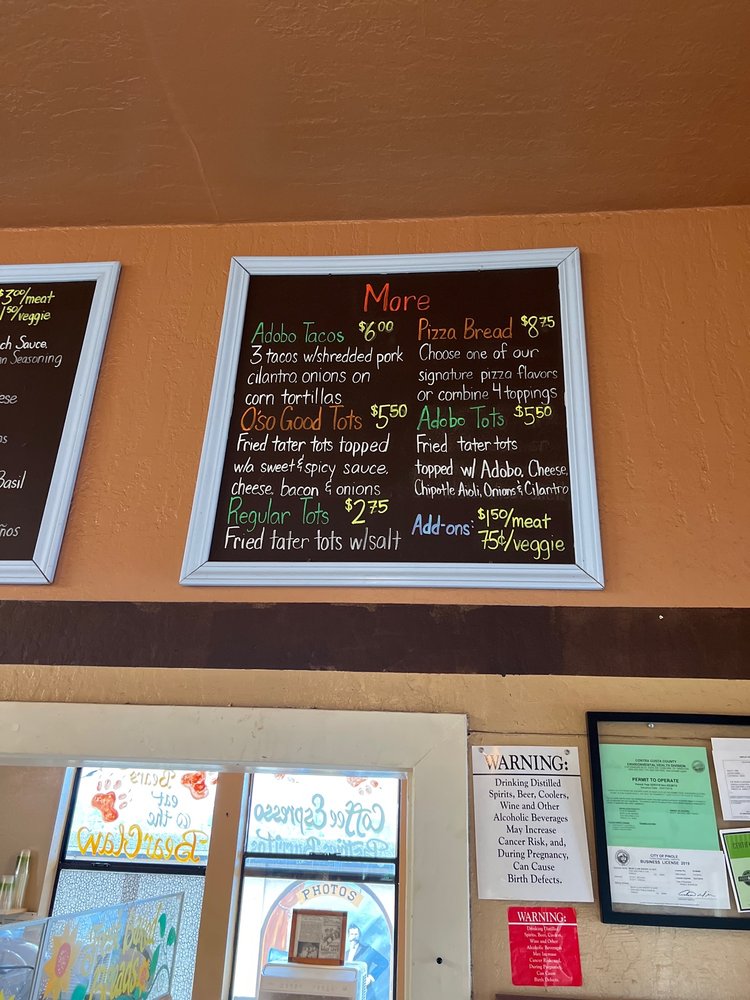 $3.00/meat
1.50/veggie
ch Sauce.
n Seasoning
ese
Basil
ños
More
Adobo Tacos $6.00
3 tacos w/shredded pork
cilantro, onions on
corn tortillas
O'so Good Tots $5.50
Fried tater tots topped
w/a sweet & spicy sauce,
cheese, bacon & onions
Regular Tots $2.75
Fried tater tots w/salt
Pizza Bread $8.75
Choose one of our
signature pizza flavors
or combine 4 toppings
Adobo Tots $5.50
Fried tater tots
topped w/ Adobo, Cheese,
Chipotle Aioli, Onions & Cilantro
Add-ons: $1.50/meat
75¢/veggie
Bears
eat
@ the
Bear Claw
Coffee Espresso
PHOTOS
WARNING:
Drinking Distilled
Spirits, Beer, Coolers,
Wine and Other
Alcoholic Beverages
May Increase
Cancer Risk, and,
During Pregnancy,
Can Cause
Birth Defects.
WARNING:
Drinking Distilled
Spirits, Beer, Coolers,
Wine and Other
Alcoholic Beverages
May Increase
Cancer Risk, and,
During Pregnancy,
Can Cause
Birth Defects.
CONTRA COSTA COUNTY
ENVIRONMENTAL HEALTH DIVISION
PERMIT TO OPERATE
CITY OF PINOLE
BUSINESS LICENSE 2019